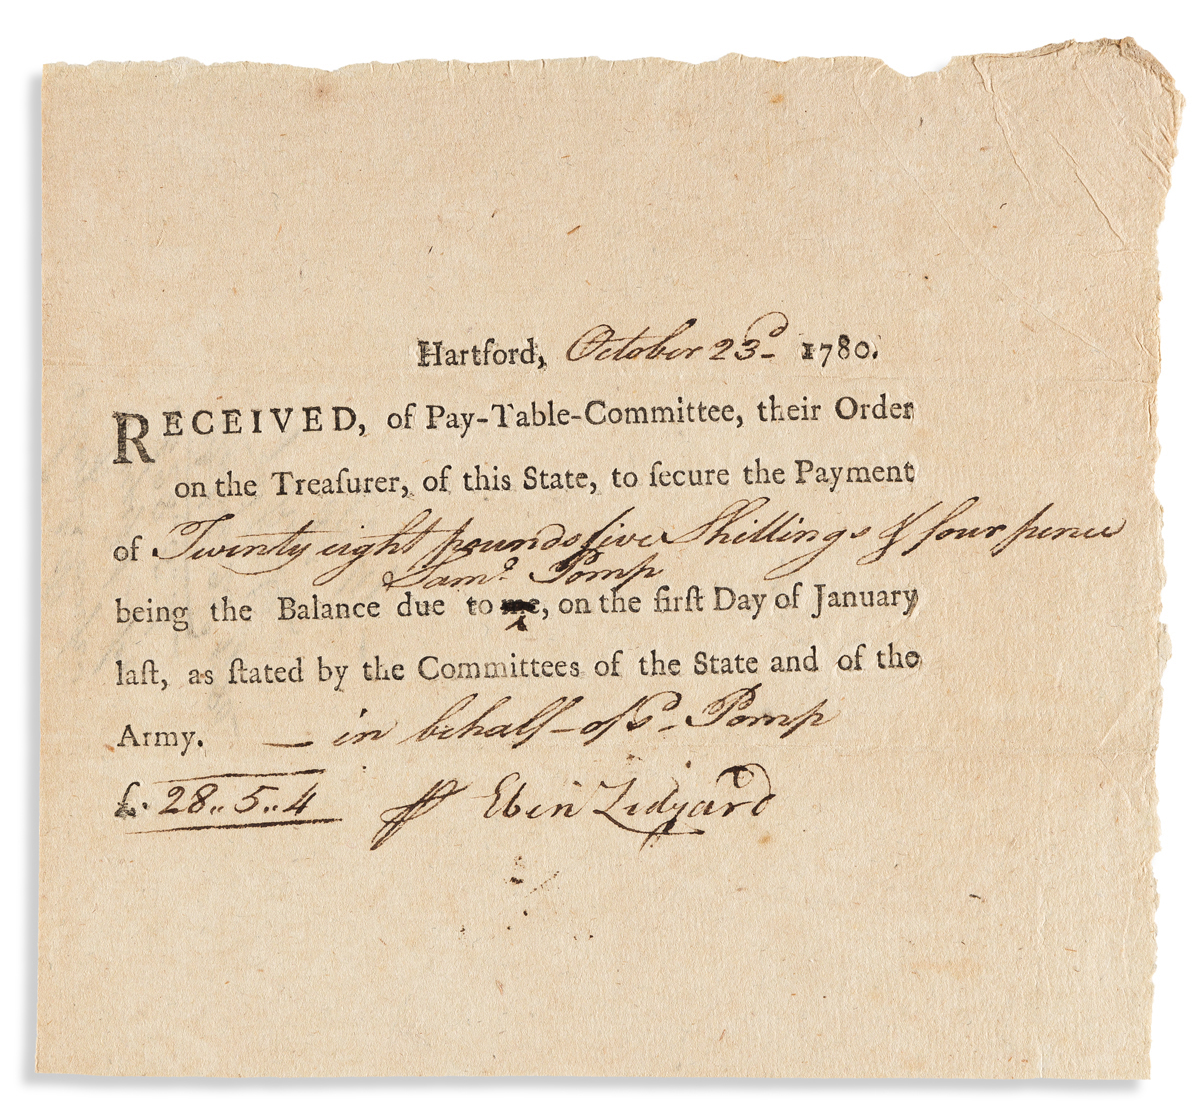 Hartford, October 23d 1780.
RECEIVED, of Pay-Table-Committee, their Order
on the Treaſurer, of this State, to ſecure the Payment
of Twenty eight pounds five Shillings & four pence
Saml Pomp
being the Balance due to me, on the firſt Day of January
laſt, as ſtated by the Committees of the State and of the
Army. — in behalf of Sd Pomp
£. 28..5..4 Eben Ledyard